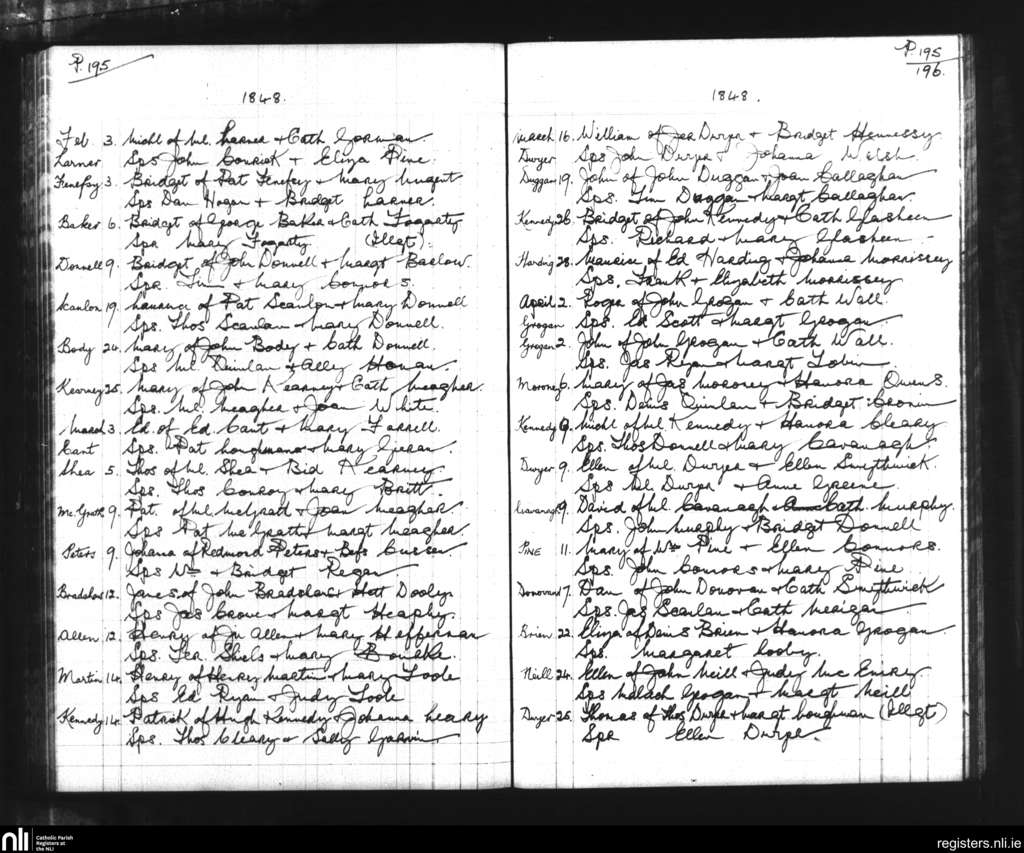 P. 195
1848.
Feb 3. Michl of Ml. Larner & Cath Gorman.
Larner Sps John Bourick & Eliza Pine.
Fenefsy 3. Bridget of Pat Fenefsy & Mary Nugent
Sps Dan Hogan & Bridget Larner.
Baker 6. Bridget of George Baker & Cath Fogarty
Spr Mary Fogarty (Illegt).
Donnell 9. Bridget of John Donnell & Margt Barlow.
Sps. Tim & Mary Connors.
Scanlon 19. Laurence of Pat Scanlon & Mary Donnell
Sps. Thos Scanlan & Mary Donnell.
Body 24. Mary of John Body & Cath Donnell.
Sps Ml. Quinlan & Alley Honan.
Kearney 25. Mary of John Kearney & Cath Meagher.
Sps. Ml. Meagher & Joan White.
March 3. Ed. of Ed. Cant & Mary Farrell.
Cant Sps. Pat & Mary
Shea 5. Thos of Ml. Shea & Bid Kearney
Sps. Thos Conroy & Mary Britt.
Mc.Grath 9. Pat. of Ml McGrath & Joan Meagher
Sps Pat McGrath & Margt Meagher.
Peters 9. Johana of Redmond Peters & Bess Cussen
Sps Wm & Bridget Regan
Bradshaw 12. James of John Bradshaw & Hott Dooley
Sps Jas Crowe & Margt Heaphy.
Allen 12. Henry of Jn Allen & Mary Hefferman
Sps. Ter. Shels & Mary Bourke.
Martin 14. Henry of Henry Martin & Mary Toole
Sps Ed Ryan & Judy Toole
Kennedy 14. Patrick of Hugh Kennedy & Johanna Leary
Sps. Thos Cleary & Sally Garvin.
P. 195
196.
1848.
March 16. William of Jer Dwyer & Bridget Hennessy
Dwyer Sps John Dwyer & Johanna Welsh.
Duggan 19. John of John Duggan & Joan Callaghan
Sps. Tim Duggan & Margt Callaghan.
Kennedy 26. Bridget of John Kennedy & Cath Glasheen
Sps. Richard & Mary Glasheen.
Harding 28. Maurice of Ed Harding & Johanna Morrissey
Sps, Frank & Elizabeth Morrissey
April 2. Roger of John Grogan & Cath Wall.
Grogan Sps. Ed Scott & Margt Grogan.
Grogan 2. John of John Grogan & Cath Wall.
Sps. Jas Ryan & Margt Tobin
Moroney 6. Mary of Jas Moroney & Hanora Owens.
Sps. Denis Quinlan & Bridget Cronin
Kennedy 9. Michl of Ml Kennedy & Hanora Cleary
Sps. Thos Donnell & Mary Cavanagh
Dwyer 9. Ellen of Ml Dwyer & Ellen Smythwick.
Sps Ml Dwyer & Anne Greene.
Cavanagh 9. David of Ml. Cavanagh & Cath Murphy.
Sps. John Murphy & Bridget Donnell
Pine 11. Mary of Wm Pine & Ellen Connors.
Sps. John Connors & Mary Pine
Donovan 17. Dan of John Donovan & Cath Smythwick
Sps. Jas Scanlan & Cath
Brien 22. Eliza of Denis Brien & Hanora Grogan.
Sps. Margaret Looby.
Neill 24. Ellen of John Neill & Judy Mc Eniry.
Sps Malach Grogan & Margt Neill
Dwyer 25. Thomas of Thos Dwyer & Margt Loughnan (Illegt)
Spr Ellen Dwyer.
nli
Catholic Parish
Registers at
the NLI
registers.nli.ie